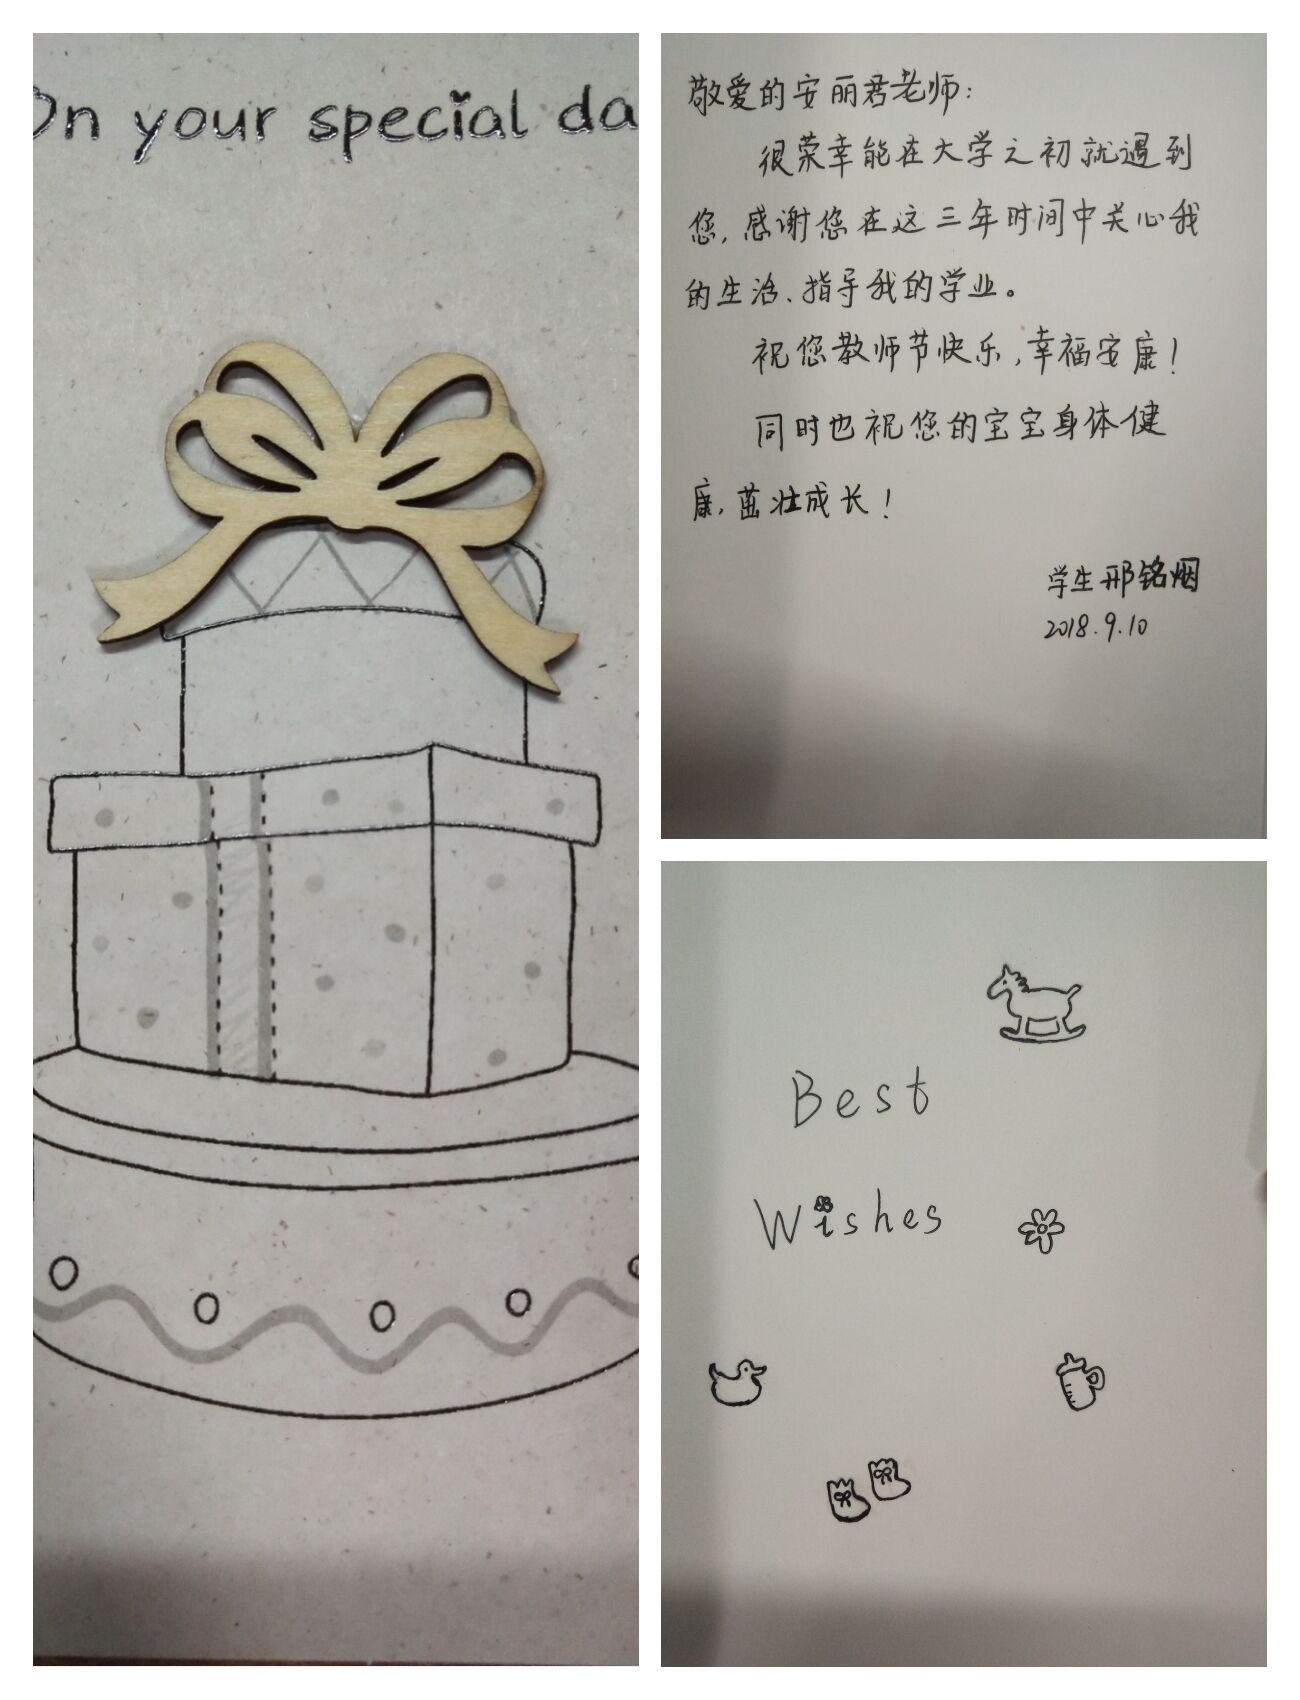 On your special da
敬爱的安丽君老师：
很荣幸能在大学之初就遇到
您，感谢您在这三年时间中关心我
的生活、指导我的学业。
祝您教师节快乐，幸福安康！
同时也祝您的宝宝身体健
康，茁壮成长！
学生邢铭烟
2018.9.10
Best
Wishes